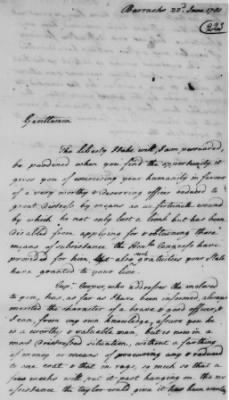 Barracks 22d. June 1781
223
Gentlemen
The liberty I take will, I am persuaded,
be pardoned when you find the opportunity it
gives you of exercising your humanity in favor
of a very worthy & deserving officer reduced to
great distress by means of an unfortunate wound
by which he not only lost a limb but has been
disabled from applying for & obtaining those
means of subsistance the Honble. Congress have
provided for him, also gratuities your State
have granted to your line.
Capt. Cowper, who addresses the inclosed
to you, has, as far as I have been informed, always
merited the character of a brave & good officer, &
I can, from my own knowledge, assure you he
is a worthy & valuable man, but is now in a
most distressed situation, without a farthing
of money or means of procuring any & reduced
to one coat & that in rags, so much so that a
few weeks will put it past hanging on the
assistance the taylor could give it have been